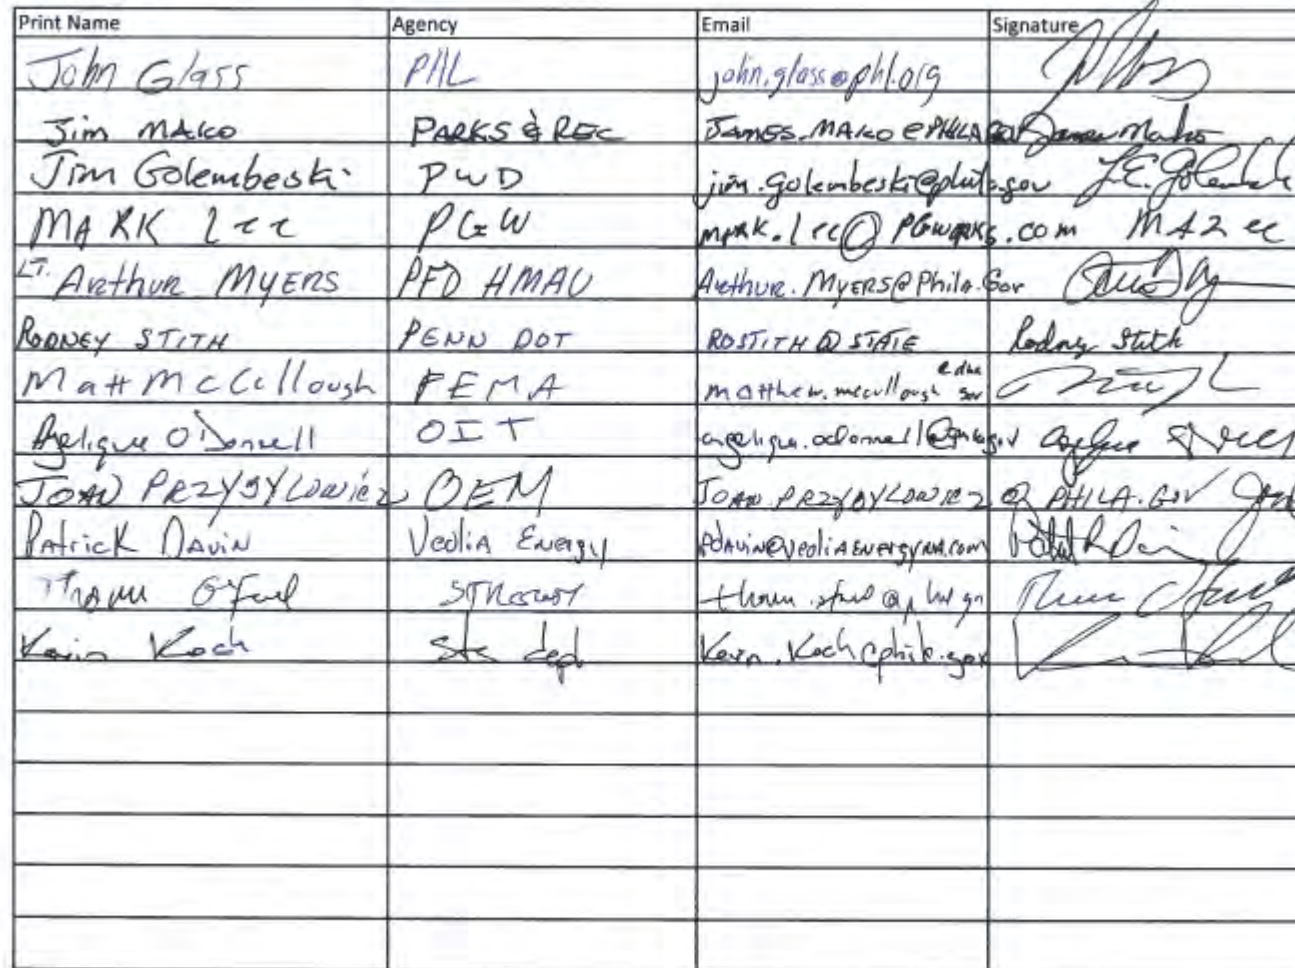 Print Name Agency Email Signature
John Glass PHL john.glass@phl.org
Jim MAKO PARKS & REC JAMES.MAKO@PHILA James Mako
Jim Golembeski PWD jim.golembeski@phila.gov J.E. Golembeski
MARK Lee PGW mark.lee@PGworks.com MA Lee
LT. Arthur MYERS PFD HMAU Arthur.MYERS@Phila.Gov
RODNEY STITH PENN DOT ROSTITH @ STATE Rodney Stith
Matt McCullough FEMA matthew.mccullough @dhs gov
Angelique O'Donnell OIT angelique.odonnell@phila.gov
JOAN PRZYBYLOWICZ OEM JOAN.PRZYBYLOWICZ @ PHILA.GOV
Patrick DAVIN Veolia Energy PDAVIN@VEOLIAENERGYNA.COM
Kevin Koch Sts dept Kevin.Koch@phila.gov